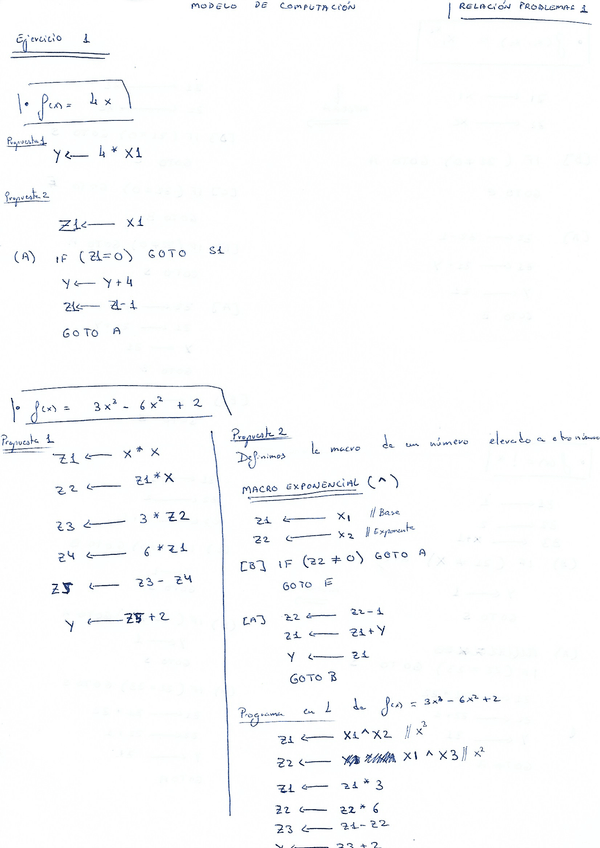 MODELO DE COMPUTACIÓN
RELACIÓN PROBLEMAS 1
Ejercicio 1
1. f(x) = 4x
Propuesta 1
Y ← 4 * X1
Propuesta 2
Z1 ← X1
(A) IF (Z1=0) GOTO S1
Y ← Y+4
Z1 ← Z1-1
GOTO A
1. f(x) = 3x³ - 6x² + 2
Propuesta 1
Z1 ← X * X
Z2 ← Z1 * X
Z3 ← 3 * Z2
Z4 ← 6 * Z1
Z5 ← Z3 - Z4
Y ← Z5 + 2
Propuesta 2
Definimos la macro de un número elevado a otro número
MACRO EXPONENCIAL (^)
Z1 ← X1 // Base
Z2 ← X2 // Exponente
[B] IF (Z2 ≠ 0) GOTO A
GOTO E
[A] Z2 ← Z2-1
Z1 ← Z1+Y
Y ← Z1
GOTO B
Programa en L de f(x) = 3x³ - 6x² + 2
Z1 ← X1 ^ X2 // x³
Z2 ← X1 ^ X3 // x²
Z1 ← Z1 * 3
Z2 ← Z2 * 6
Z3 ← Z1 - Z2
Y ← Z3 + 2